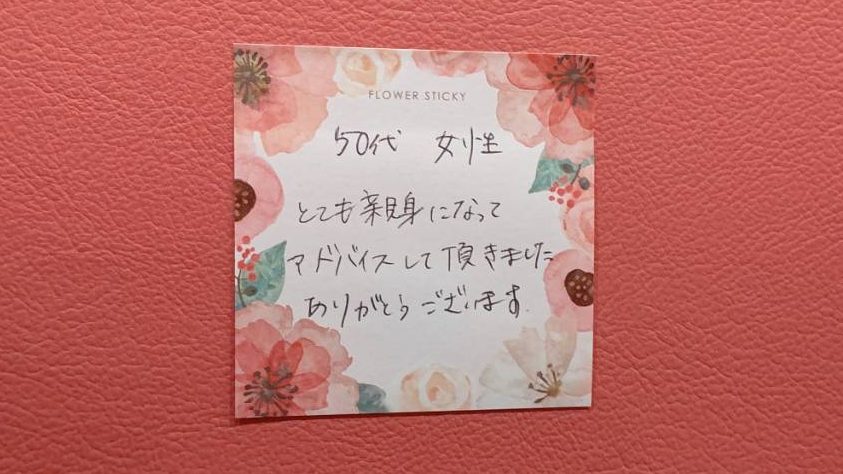 FLOWER STICKY
50代 女性
とても親身になって
アドバイスして頂きました
ありがとうございます.